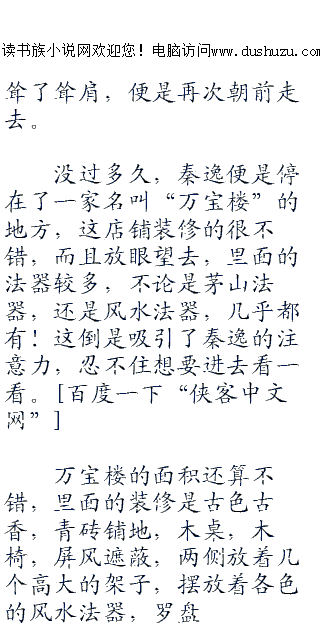 读书族小说网欢迎您！电脑访问www.dushuzu.com
耸了耸肩，便是再次朝前走
去。
没过多久，秦逸便是停
在了一家名叫“万宝楼”的
地方，这店铺装修的很不
错，而且放眼望去，里面的
法器较多，不论是茅山法
器，还是风水法器，几乎都
有！这倒是吸引了秦逸的注
意力，忍不住想要进去看一
看。[百度一下“侠客中文
网”]
万宝楼的面积还算不
错，里面的装修是古色古
香，青砖铺地，木桌，木
椅，屏风遮蔽，两侧放着几
个高大的架子，摆放着各色
的风水法器，罗盘